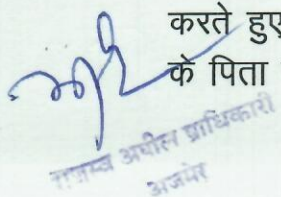 करते हुए
के पिता
राजस्व अपील प्राधिकारी
अजमेर